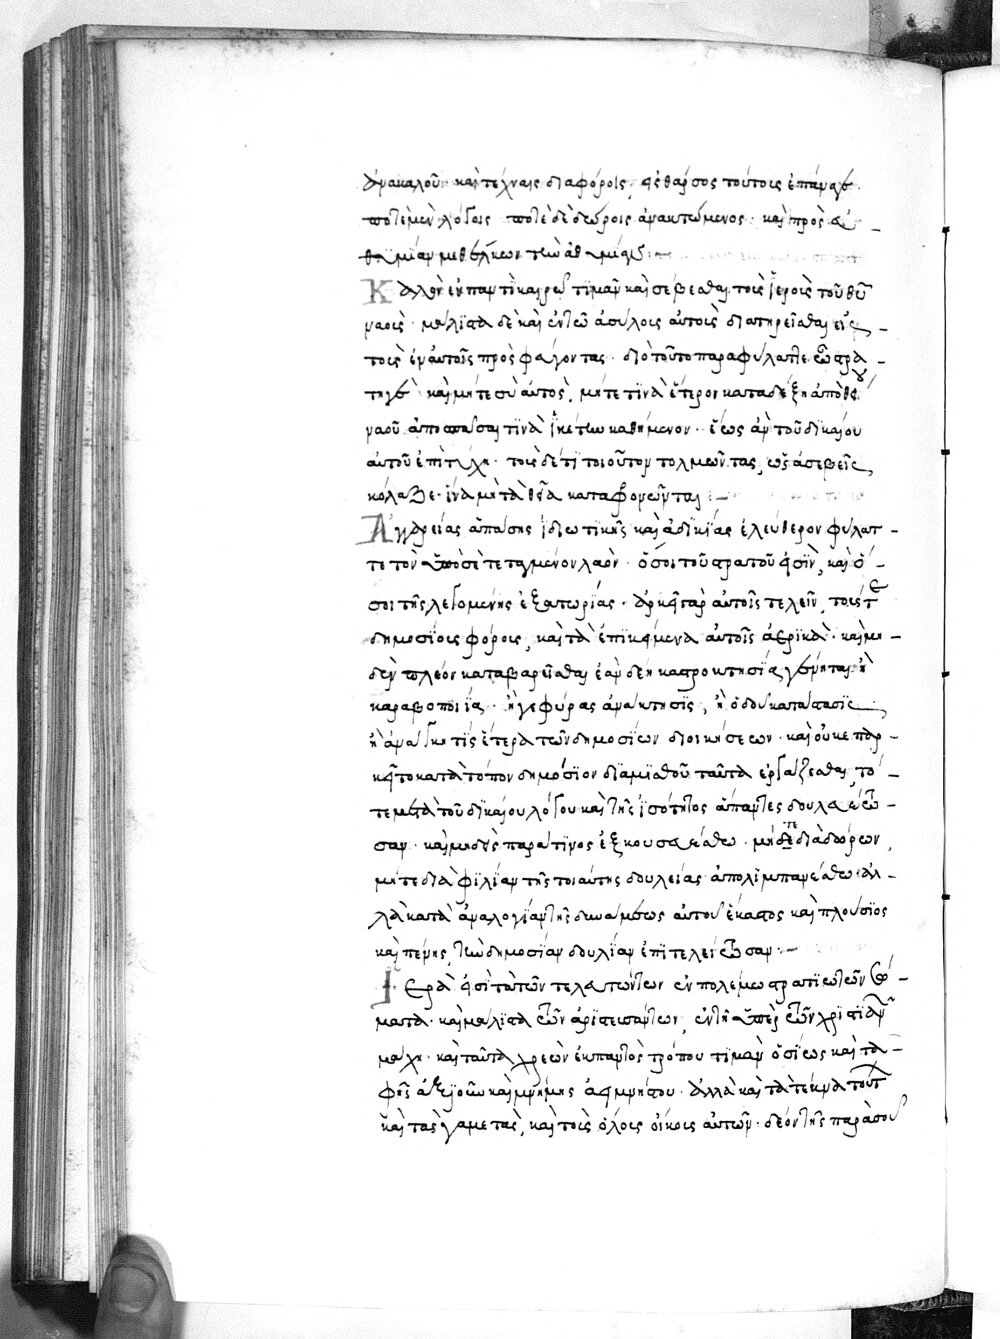 ἀνακαλοῦ· καὶ τέχναις διαφόροις, εἰς θάρσος τούτοις ἐπάναγε·
ποτὲ μὲν λόγοις ποτὲ δὲ δώροις ἀνακτώμενος· καὶ πρὸς εὐ -
θυμίαν μεθέλκων τὴν ἀθυμίαν:
Καλὸν ἐν παντὶ καιρῷ τιμᾶν καὶ σέβεσθαι τοὺς ἱεροὺς τοῦ θῦ
ναούς· μάλιστα δὲ καὶ ἐν τῶ ἀσύλους αὐτοὺς διατηρεῖσθαι εἰς -
τοὺς ἐν αὐτοῖς προσφεύγοντας· διὸ τοῦτο παραφύλαττε ὦ στρα -
τηγὲ· καὶ μήτε σὺ αὐτὸς, μήτε τινὰ ἕτερον καταδέξῃ ἀπὸ θείου
ναοῦ ἀποσπάσαι τινὰ ἱκέτην καθήμενον· ἕως ἂν τοῦ δικαίου
αὐτοῦ ἐπιτύχῃ· τοὺς δέ τι τοιοῦτον τολμῶντας, ὡς ἀσεβεῖς,
κόλαζε· ἵνα μὴ τὰ θεῖα καταφρονῶνται:
Ἀγγαρείας ἁπάσης ἰδιωτικῆς καὶ ἀδικίας ἐλεύθερον φύλατ -
τε τὸν ὑπὸ σὲ τεταγμένον λαὸν· ὅσοι τοῦ στρατοῦ εἰσὶν, καὶ ὅ -
σοι τῆς λεγομένης ἐξατωρίας· ἀρκεῖ γὰρ αὐτοῖς τελεῖν, τούς τε
δημοσίους φόρους, καὶ τὰ ἐπικείμενα αὐτοῖς ἀερικὰ· καὶ μη -
δὲν πλέον καταβαρεῖσθαι ἐὰν δὲ ἢ καστροκτησία γένηται ἢ
καραβοποιία· ἢ γεφύρας ἀνάκτησις, ἢ ὁδοῦ κατάστασις,
ἢ ἀνάγκη τίς ἑτέρα τῶν δημοσίων διοικήσεων· καὶ οὐκ ἐπαρ -
κεῖ τὸ κατὰ τόπον δημόσιον διὰ μισθοῦ ταῦτα ἐργάζεσθαι, τό -
τε μετὰ τοῦ δικαίου λόγου καὶ τῆς ἰσότητος ἅπαντες δουλευέτω -
σαν· καὶ μηδεὶς παρά τινος ἐξκουσευέσθω· μήτε διὰ δώρων,
μήτε διὰ φιλίαν τῆς τοιαύτης δουλείας ἀπολιμπανέσθω· ἀλ -
λὰ κατὰ ἀναλογίαν τῆς δυνάμεως αὐτοῦ ἕκαστος καὶ πλούσιος
καὶ πένης, τὴν δημοσίαν δουλείαν ἐπιτελείτωσαν·
Ἱερὰ εἰσὶ τὰ τῶν τελευτώντων ἐν πολέμω στρατιωτῶν σώ -
ματα· καὶ μάλιστα τῶν ἀριστευσάντων, ἐν τῆ ὑπὲρ τῶν χριστιανῶν
μάχη· καὶ ταῦτα χρεὼν ἐκ παντὸς τρόπου τιμᾶν ὁσίως καὶ τα -
φῆς ἀξιοῦν καὶ μνήμης ἀειμνήστου· ἀλλὰ καὶ τὰ τέκνα τούτων
καὶ τὰς γαμετὰς, καὶ τοὺς ὅλους οἴκους αὐτῶν· δέον τῆς παρὰ σοῦ